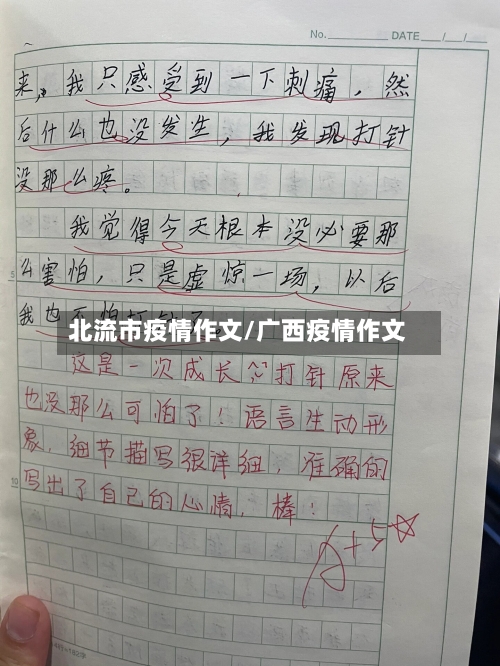 No. DATE / /
来，我只感受到一下刺痛，然
后什么也没发生，我发现打针
没那么疼。
我觉得今天根本没必要那
5
么害怕，只是虚惊一场，以后
我也不怕打针了。
北流市疫情作文/广西疫情作文
这是一次成长，打针原来
也没那么可怕了！语言生动形
象，细节描写很详细，准确的
10
写出了自己的心情，棒！
A+5☆